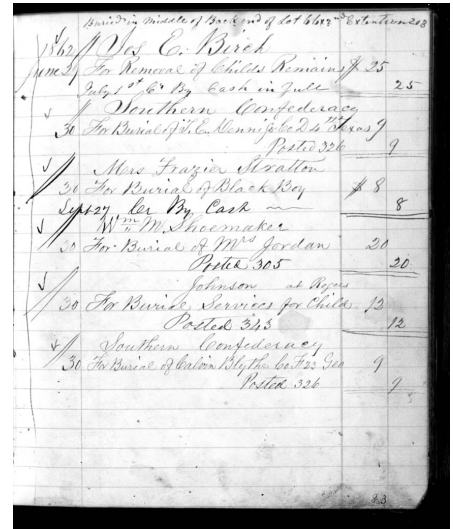 Buried in Middle of Back end of Lot 6 6x2 2nd Extention 203
1862 // Jos E. Birch
June 29 For Removal of Childs Remains $ 25
July 1st Cr By Cash in full 25
// Southern Confederacy
30 For Burial of T. E. Dennis Co D 4th Texas 9
Posted 326 9
Mrs Frazier Stratton
30 For Burial of Black Boy $ 8
Sept 27 Cr By Cash 8
Wm M. Shoemaker
30 For Burial of Mrs Jordan 20
Posted 305 20
Johnson at
30 For Burial Services for Child 12
Posted 343 12
Southern Confederacy
30 For Burial of Calvin Blythe Co F 23 Geo 9
Posted 326 9
83